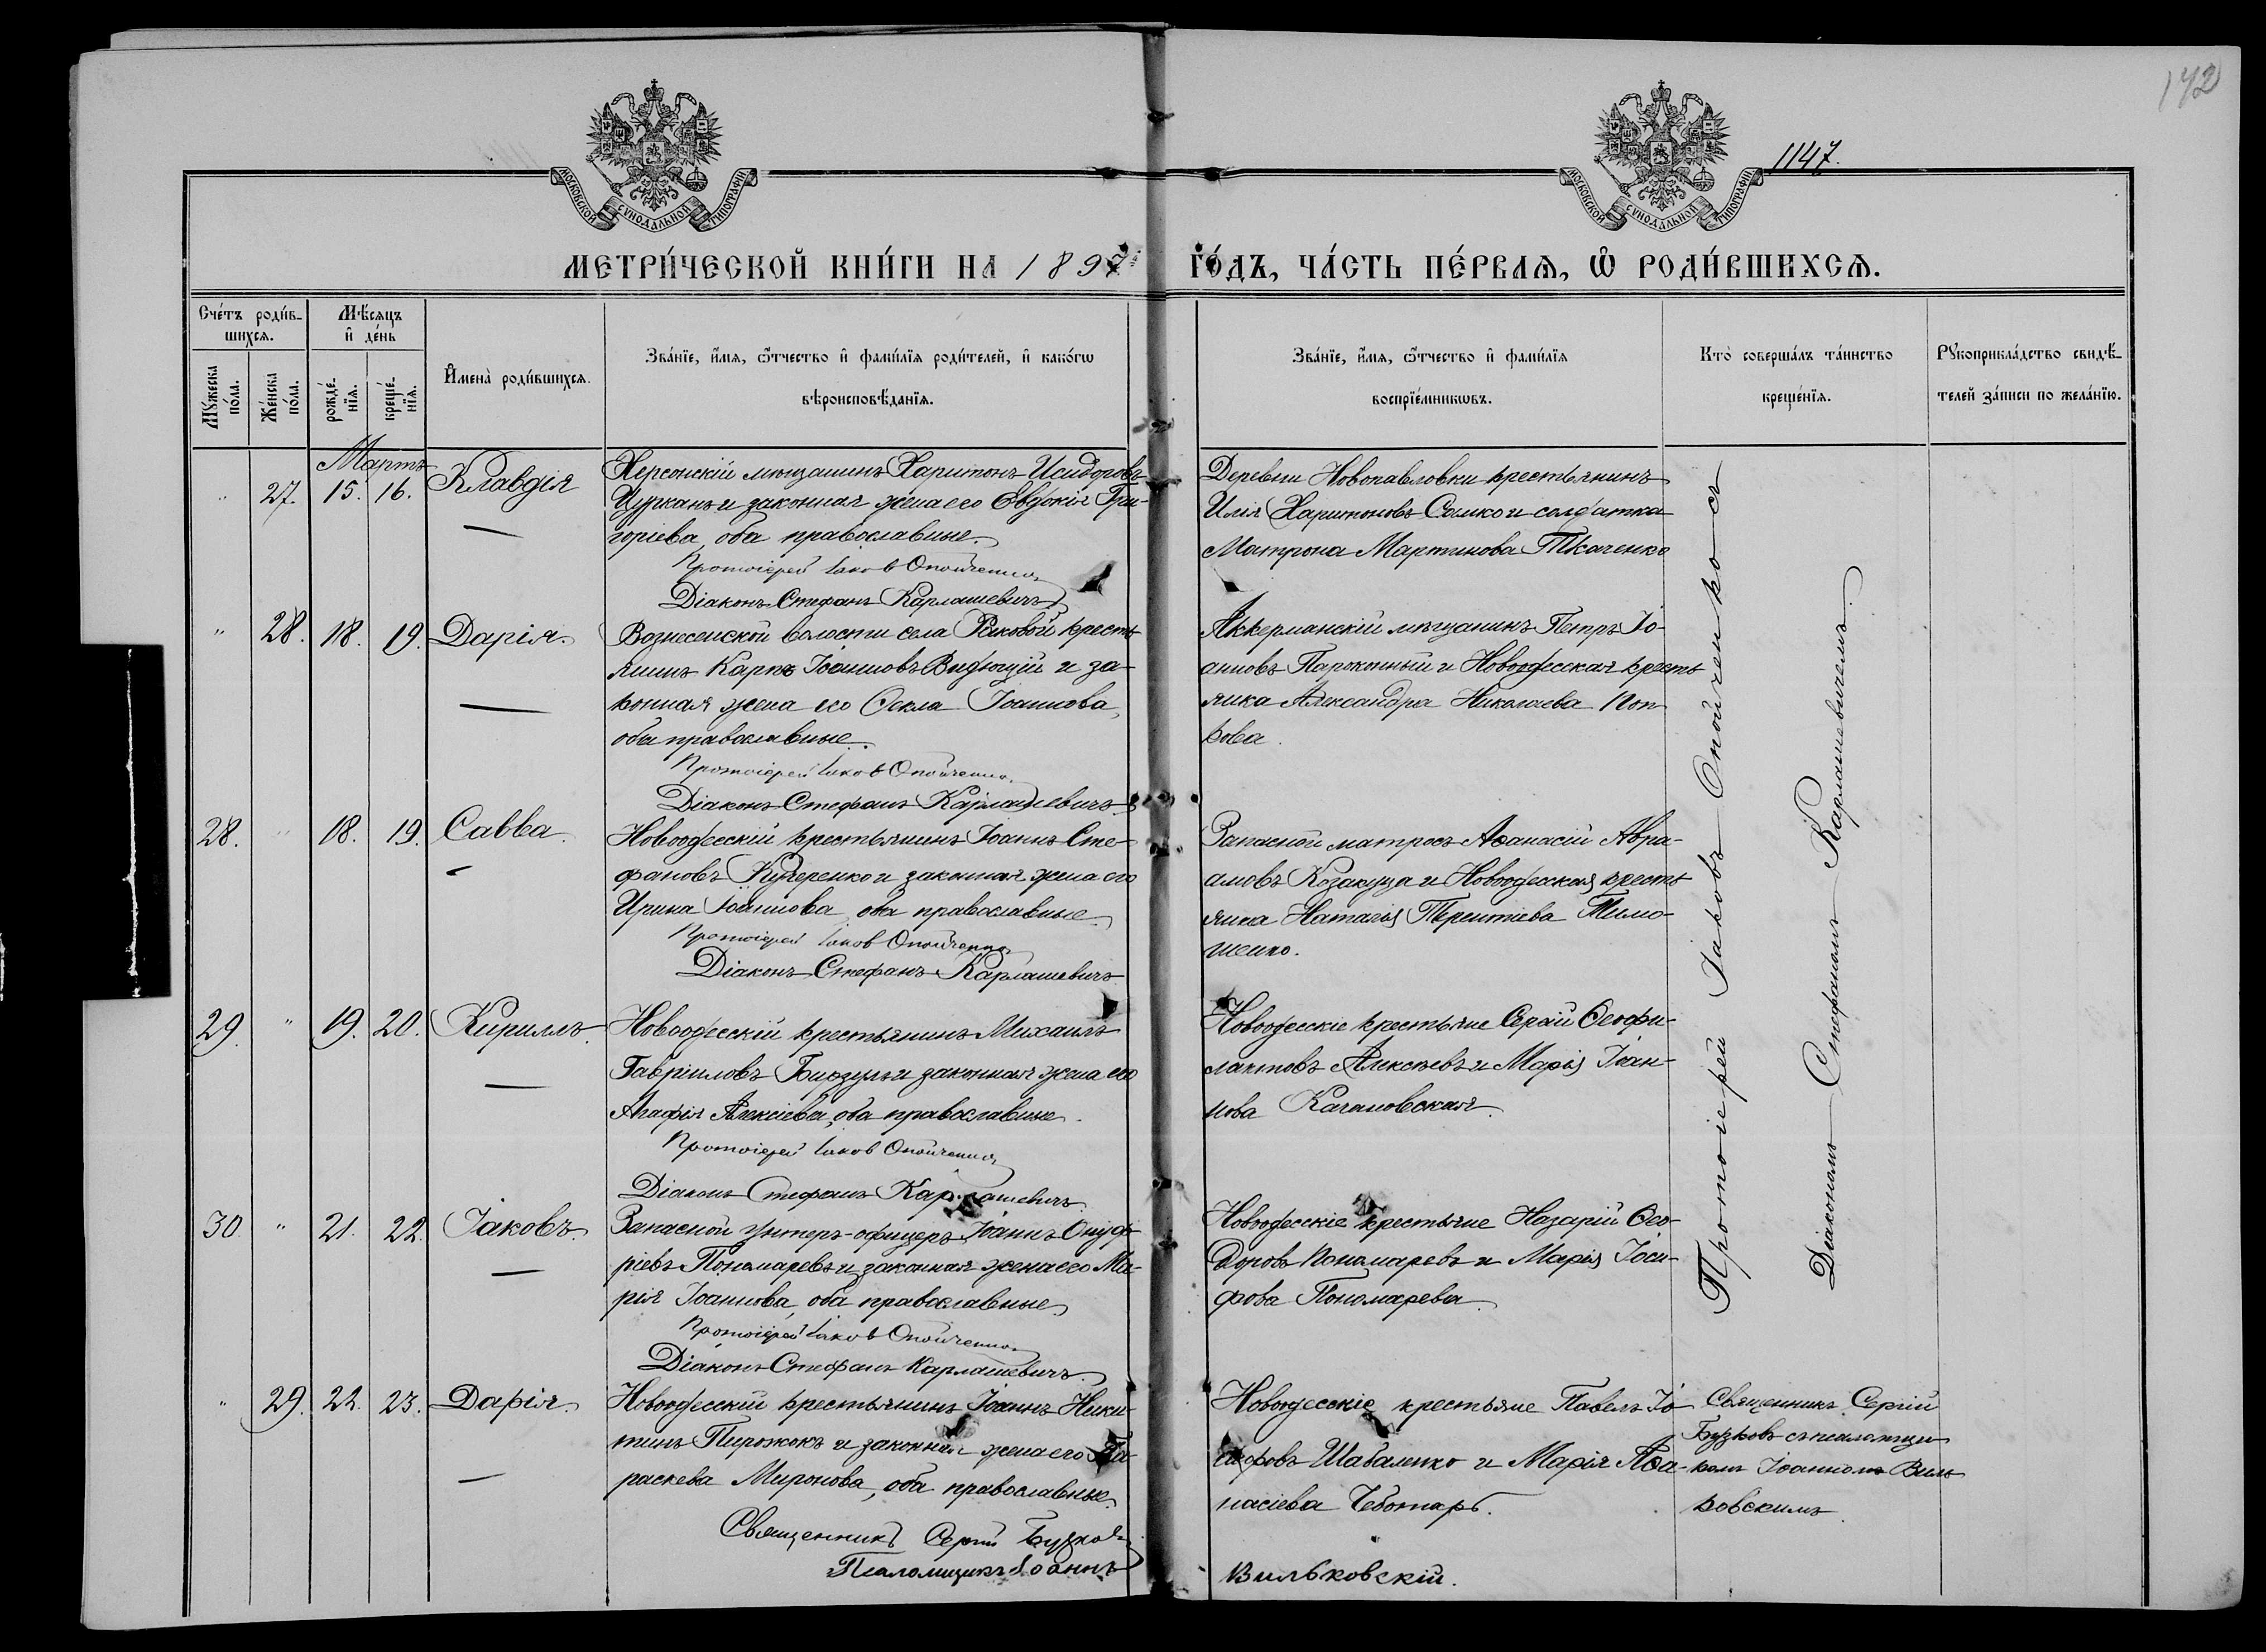 142
1147.
МОСКОВСКОЙ СУНОДАЛЬНОЙ ТИПОГРАФІИ
МОСКОВСКОЙ СУНОДАЛЬНОЙ ТИПОГРАФІИ
МЕТРИ́ЧЕСКОЙ КНИ́ГИ НА 1897 ГО́ДЪ, ЧА́СТЬ ПЕ́РВАѦ, Ѡ РОДИ́ВШИХСѦ.
Сче́тъ роди́в-
шихсѧ.
Мѣ́сѧцъ
и҆ де́нь
Мꙋ́жеска
по́ла.
Же́нска
по́ла.
рожде́-
нїѧ.
креще́-
нїѧ.
И҆мена̀ роди́вшихсѧ.
Зва́нїе, и҆́мѧ, ѻ҆́тчество и҆ фами́лїѧ роди́телей, и҆ како́гѡ
вѣроисповѣ́данїѧ.
Зва́нїе, и҆́мѧ, ѻ҆́тчество и҆ фами́лїѧ
воспрїе́мникѡвъ.
Кто̀ соверша́лъ та́инство
креще́нїѧ.
Рꙋкоприкла́дство свидѣ́-
телей за́писи по жела́нїю.
Мартъ
" 27. 15. 16. Клавдія
Херсонскій мѣщанинъ Харитонъ Исидоровъ
Цурканъ и законная жена его Евдокія Гри-
горіева, оба православные.
Протоіерей Іаковъ Опойченко
Діаконъ Стефанъ Карлашевичъ
Деревни Новопавловки крестьянинъ
Илія Харитоновъ Самко и солдатка
Матрона Мартинова Ткаченко
" 28. 18. 19. Дарія.
Вознесенской волости села Раковой кресть
янинъ Карпъ Іоанновъ Видющій и за-
конная жена его Ѳекла Іоаннова,
оба православные.
Протоіерей Іаковъ Опойченко
Діаконъ Стефанъ Карлашевичъ
Аккерманскій мѣщанинъ Петръ Іо-
анновъ Пароконный и Новоодесская кресть
янка Александра Николаева Поп
кова.
28. " 18. 19. Савва.
Новоодесскій крестьянинъ Іоаннъ Сте-
фановъ Кучеренко и законная жена его
Ирина Іоаннова, оба православные
Протоіерей Іаковъ Опойченко
Діаконъ Стефанъ Карлашевичъ
Запасной матросъ Аѳанасій Авра-
амовъ Козакуца и Новоодесская кресть
янка Наталія Терентіева Тимо-
шенко.
29. " 19. 20. Кириллъ.
Новоодесскій крестьянинъ Михаилъ
Гавріиловъ Бирзулъ и законная жена его
Агафія Алексіева, оба православные.
Протоіерей Іаковъ Опойченко
Діаконъ Стефанъ Карлашевичъ
Новоодесскіе крестьяне Сергій Ѳеофи-
лактовъ Алексѣевъ и Марія Іоан-
нова Качановская.
30. " 21. 22. Іаковъ.
Запасной унтеръ-офицеръ Іоаннъ Онуф-
ріевъ Пономаревъ и законная жена его Ма-
рія Іоаннова, оба православные
Протоіерей Іаковъ Опойченко
Діаконъ Стефанъ Карлашевичъ.
Новоодесскіе крестьяне Назарій Ѳео-
доровъ Пономаревъ и Марія Іоси-
фова Пономарева.
" 29. 22. 23. Дарія.
Новоодесскій крестьянинъ Іоаннъ Ники-
тинъ Пирожокъ и законная жена его Па-
раскева Миронова, оба православные.
Священникъ Сергій Бузковъ
Псаломщикъ Іоаннъ
Вильковскій.
Новоодесскіе крестьяне Павелъ Іо-
сифовъ Шабаленко и Марія Аѳа-
насіева Чеботарь.
Протоіерей Іаковъ Опойченко съ
Діакономъ Стефаномъ Карлашевичемъ.
Священникъ Сергій
Бузковъ съ псаломщи
комъ Іоанномъ Виль
ковскимъ.